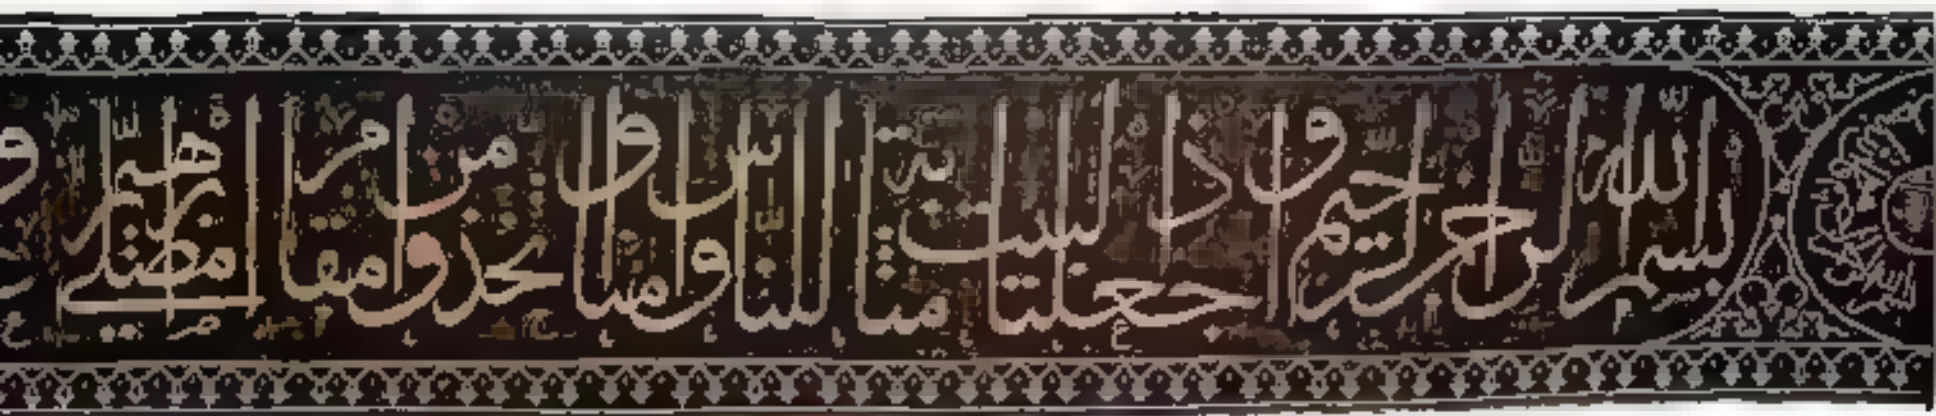 بسم الله الرحمن الرحيم واذ جعلنا البيت مثابة للناس وامنا واتخذوا من مقام ابرهيم مصلى و